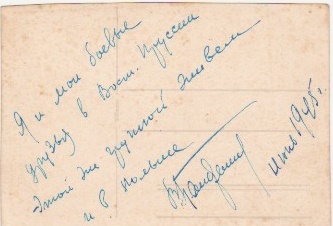 Я и мои боевые
друзья в Вост. Пруссии
этой же группой жили
и в Польше
июнь 1945 г.